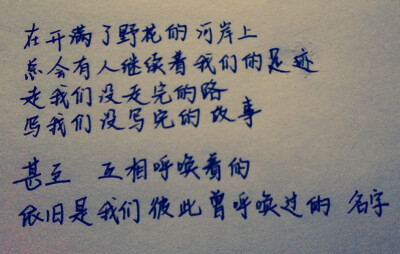 在开满了野花的河岸上
总会有人继续着我们的足迹
走我们没走完的路
写我们没写完的故事
甚至 互相呼唤着的
依旧是我们彼此曾呼唤过的 名字